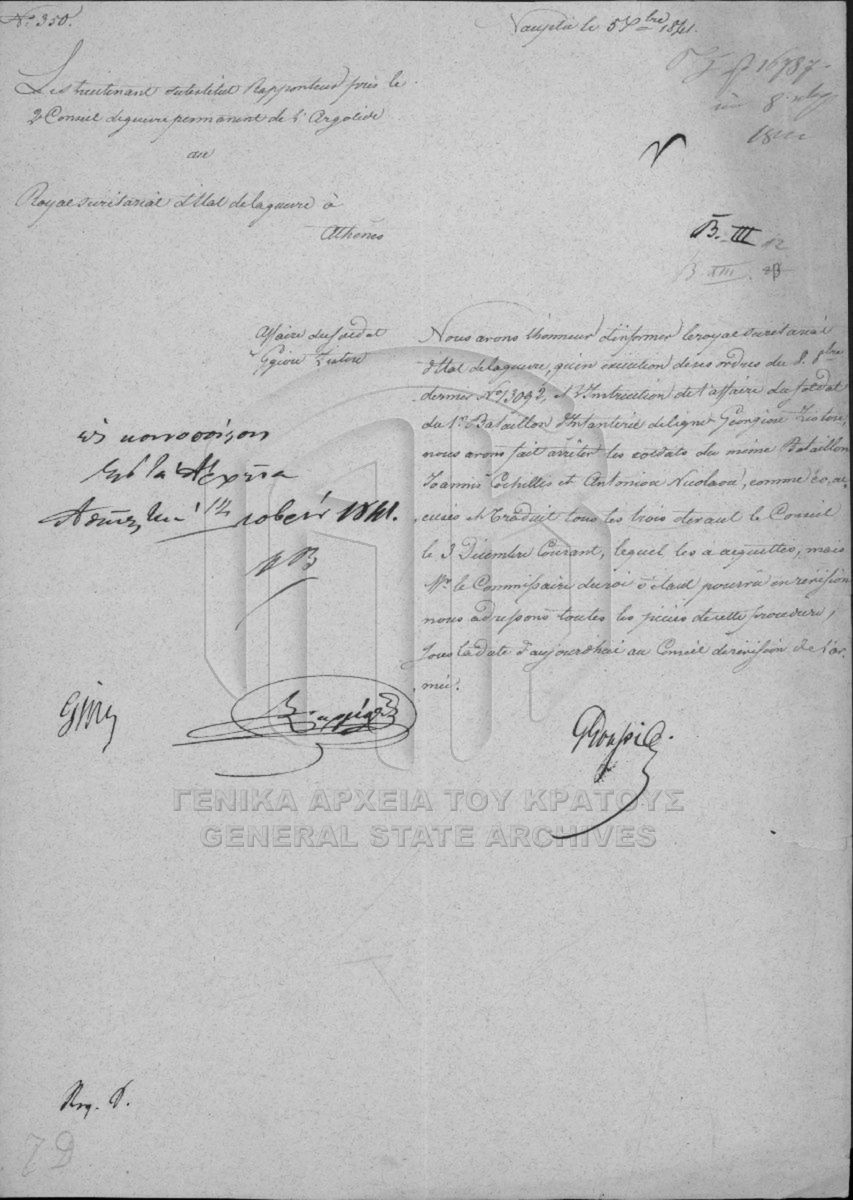 No 350.
Nauplie le 5 Xbre 1841.
Le Lieutenant Substitut Rapporteur près le
2 Conseil de guerre permanent de l'Argolide
au
Royal secrétariat d'Etat de la guerre à
Athènes
16787
8
B. III 12
B XIII
Affaire du soldat
Nous avons l'honneur d'informer le royal secrétariat
d'Etat de la guerre, qu'en exécution de ses ordres du 8. 8bre
dernier No 13092, et l'Instruction de l'affaire du soldat
du 1r Bataillon d'Infanterie de ligne Georgiou
nous avons fait arrêter les soldats du même Bataillon
Joannis et Antoniou Nicolaou, comme co-ac-
cusés et traduit tous les trois devant le Conseil
le 3 Décembre Courant, lequel les a acquittés, mais
Mr le Commissaire du roi s'étant pourvu en révision
nous adressons toutes les pièces de cette procédure,
sous la date d'aujourd'hui au Conseil de révision de l'ar-
mée.
εἰς
Ἀθῆναι 12 1841.
Reg. D.
ΓΕΝΙΚΑ ΑΡΧΕΙΑ ΤΟΥ ΚΡΑΤΟΥΣ
GENERAL STATE ARCHIVES